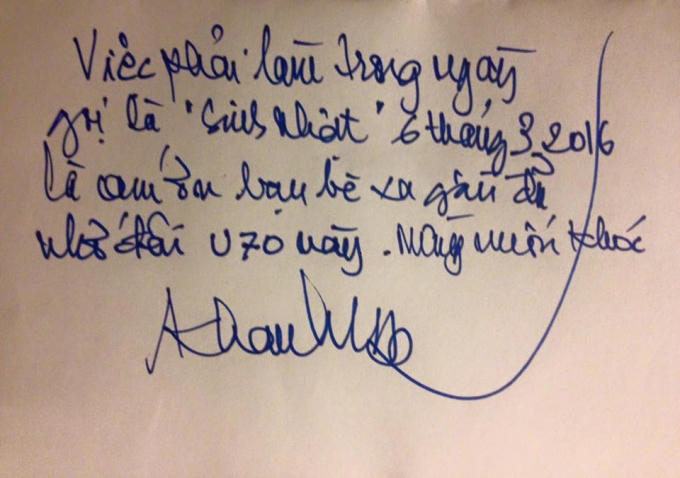 Việc phải làm trong ngày
gọi là "Sinh nhật" 6 tháng 3 2016
là cám ơn bạn bè xa gần đã
nhớ đến U70 này. Mừng muốn khóc